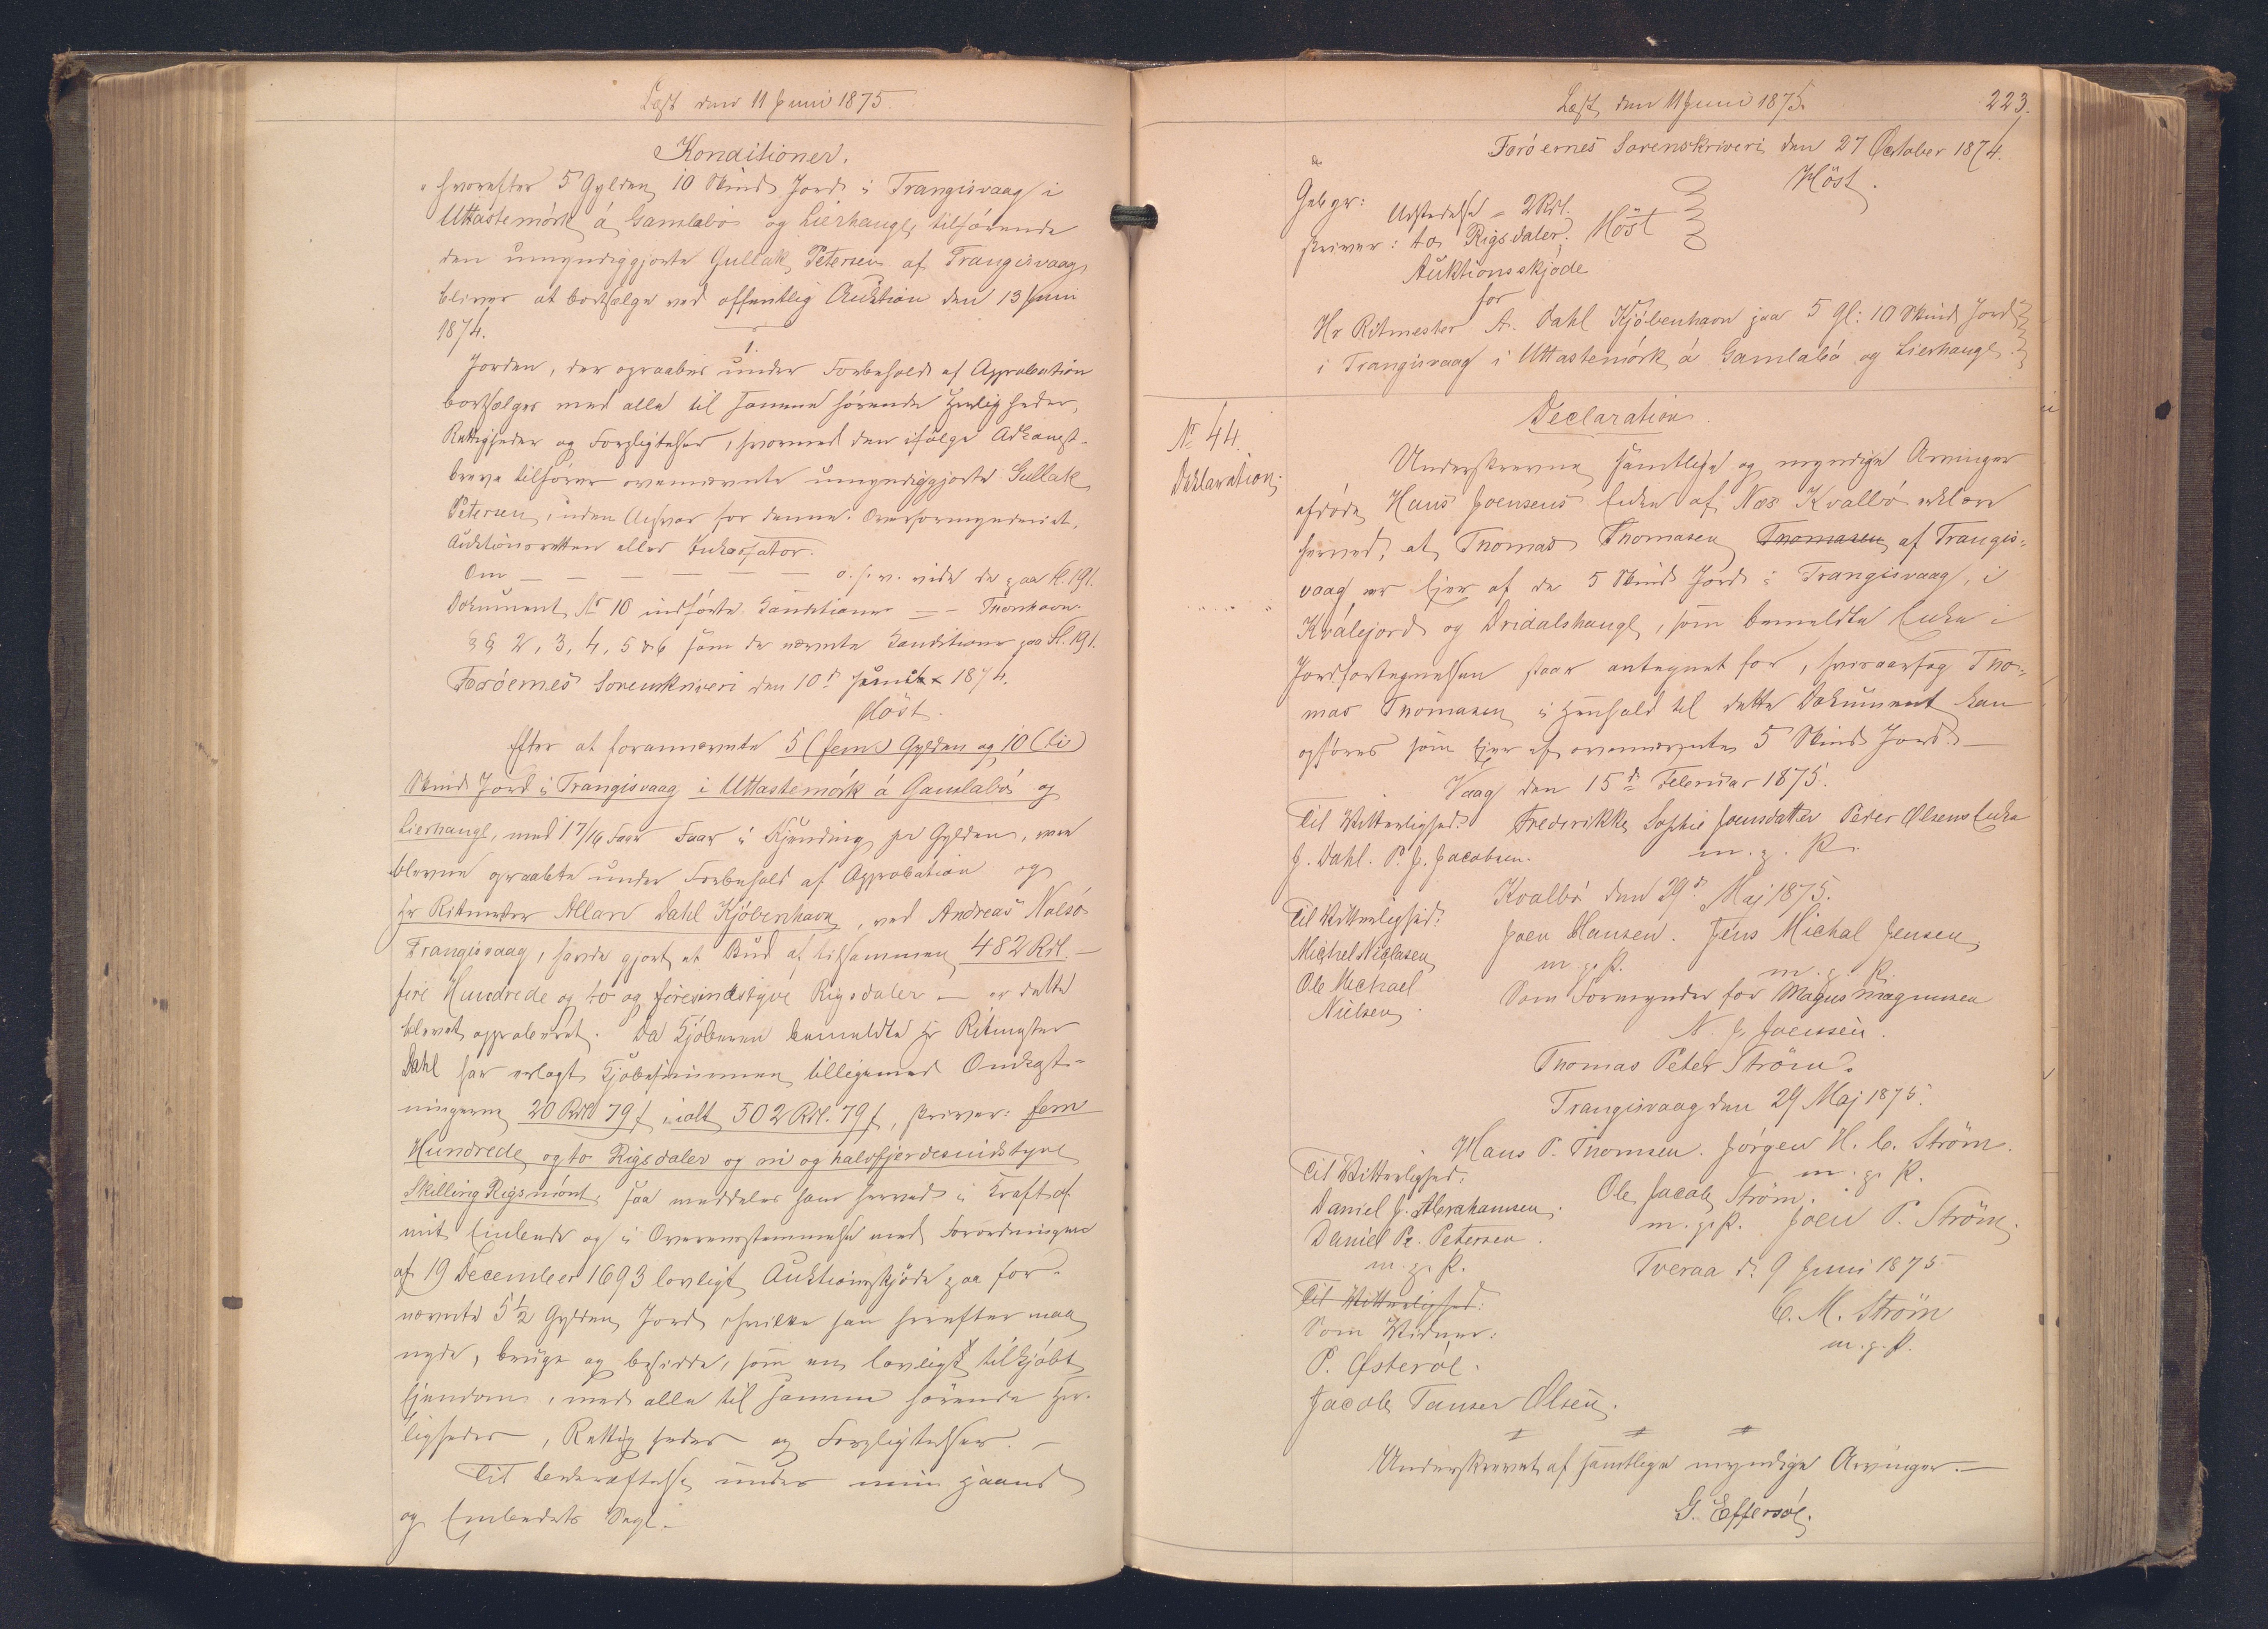 Læst den 11 Juni 1875.
Konditioner,
hvorefter 5 Gylden 10 Skind Jord i Trangisvaag i
Uttastemørk á Gamlabø og Lierhaugl, tilhørende
den umyndiggjorte Gullak Petersen af Trangisvaag,
bliver at bortsælge ved offentlig Auktion den 13 Juni
1874.
1.
Jorden, der opraabes under Forbehold af Approbation
bortsælges med alle til samme hørende Herligheder,
Rettigheder og Forpligtelser, hvormed den ifølge Adkomst-
breve tilhører ovennævnte umyndiggjorte Gullak
Petersen, uden Ansvar for denne, Overformynderiet,
Auktionsretten eller Inkassator.
Om — — — — — — o. s. v. vide de paa Fl. 191.
Dokument № 10 indførte Konditioner — — Thorshavn.
§§ 2, 3, 4, 5 & 6 som de nævnte Konditioner paa Fl. 191.
Færøernes Sorenskriveri den 10d Juni 1874.
Høst.
Efter at forannævnte 5 (fem) Gylden og 10 (ti)
Skind Jord i Trangisvaag i Uttastemørk á Gamlabø og
Lierhaugl, med 17/16 Faar i Kjending pr Gylden, var
blevne opraabte under Forbehold af Approbation og
Hr Ritmester Allan Dahl Kjøbenhavn, ved Andreas Nolsø
Trangisvaag, havde gjort et Bud af tilsammen 482 Rdl. —
fire Hundrede og to og firesindstyve Rigsdaler — er dette
blevet approberet. Da Kjøberen bemeldte Hr Ritmester
Dahl har erlagt Kjøbesummen tilligemed Omkost-
ningerne 20 Rdl 79 ſ, ialt 502 Rdl. 79 ſ, skriver: fem
Hundrede og to Rigsdaler og ni og halvfjerdesindstyve
Skilling Rigsmønt, saa meddeles ham herved i Kraft af
mit Embede og i Overensstemmelse med Forordningen
af 19 December 1693 lovligt Auktionsskjøde paa for-
nævnte 5½ Gylden Jord, hvilke han herefter maa
nyde, bruge og besidde, som en lovligt tilkjøbt
Ejendom, med alle til samme hørende Her-
ligheder, Rettigheder og Forpligtelser. —
Til Bekræftelse under min Haand
og Embedets Segl. —
Læst den 11 Juni 1875.
223.
Færøernes Sorenskriveri den 27 October 1874.
Høst.
Gebyr:
Udstedelse = 2 Rdl.
skriver: to Rigsdaler. Höst
Auktionsskjøde
for
Hr Ritmester A. Dahl Kjøbenhavn paa 5 Gl: 10 Skind Jord
i Trangisvaag i Uttastemørk á Gamlabø og Lierhaugl.
№ 44.
Deklaration.
Declaration.
Underskrevne samtlige og myndige Arvinger
afdøde Hans Joensens Enke af Næs Kvalbø erklære
herved, at Thomas Thomasen Thomasen af Trangis-
vaag er Ejer af de 5 Skind Jord i Trangisvaag, i
Kválejord og Dridalshaugl, som bemeldte Enke i
Jordfortegnelsen staar antegnet for, hvoraarsag Tho-
mas Thomasen i Henhold til dette Dokument kan
opføres som Ejer af ovennævnte 5 Skind Jord. —
Vaag den 15d Februar 1875.
Til Vitterlighed: Frederikke Sophie Joensdatter Peder Olsens Enke
J. Dahl. P. J. Jacobsen. m. p. P.
Kvalbø den 29d Maj 1875.
Til Vitterlighed: Joen Hansen. Jens Michal Jensen
Michel Niclasen m. p. P. m. p. P.
Ole Michael Som Formynder for Magnus Magnusen
Nielsen. N. J. Joensen.
Thomas Peter Strøm.
Trangisvaag den 29 Maj 1875.
Hans P. Thomsen. Jørgen H. C. Strøm.
Til Vitterlighed: m. p. P.
Daniel J. Abrahamsen. Ole Jacob Strøm.
Daniel Pr. Petersen. m. p. P. Joen P. Strøm.
m. p. P. Tveraa d. 9 Juni 1875
Til Vitterlighed:
Som Vidner: C. M. Strøm
P. Østerøe. m. p. P.
Jacob Tauser Olsen.
Underskrevet af samtlige myndige Arvinger. —
G. Effersøe.